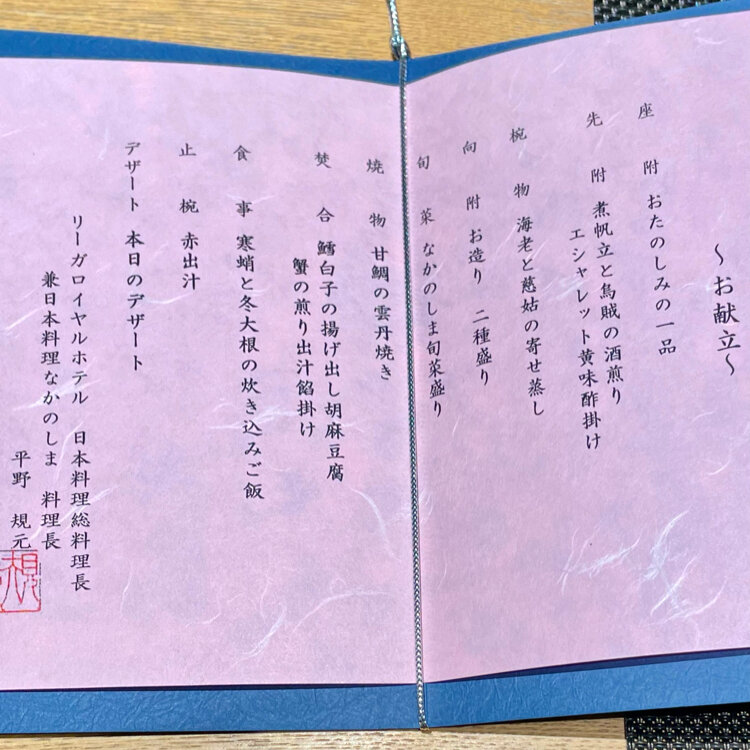 ～お献立～
座附 おたのしみの一品
先附 煮帆立と烏賊の酒煎り
エシャレット黄味酢掛け
椀物 海老と慈姑の寄せ蒸し
向附 お造り 二種盛り
旬菜 なかのしま旬菜盛り
焼物 甘鯛の雲丹焼き
焚合 鱈白子の揚げ出し胡麻豆腐
蟹の煎り出汁餡掛け
食事 寒蛸と冬大根の炊き込みご飯
止椀 赤出汁
デザート 本日のデザート
リーガロイヤルホテル 日本料理総料理長
兼日本料理なかのしま 料理長
平野 規元